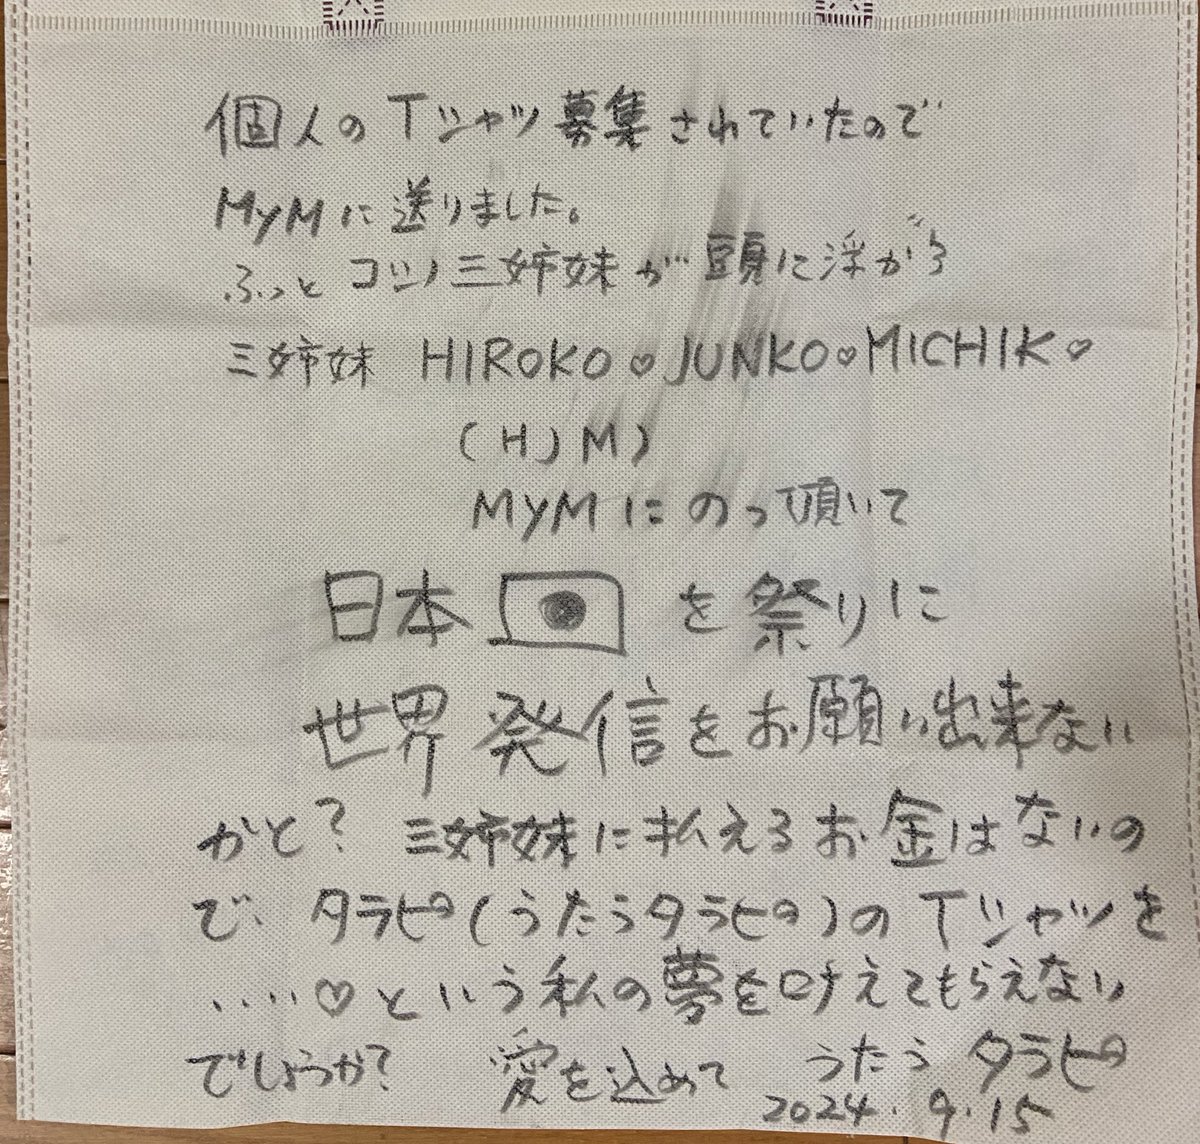 個人のTシャツ募集されていたので
MyMに送りました。
ふっとコシノ三姉妹が頭に浮かび
三姉妹 HIROKO♡JUNKO♡MICHIK♡
(HJM)
MyMにのって頂いて
日本 を祭りに
世界発信をお願い出来ない
かと? 三姉妹に払えるお金はないの
で、タラピ(うたうタラピ)のTシャツを
....♡という私の夢を叶えてもらえない
でしょうか? 愛を込めて うたう タラピ
2024.9.15